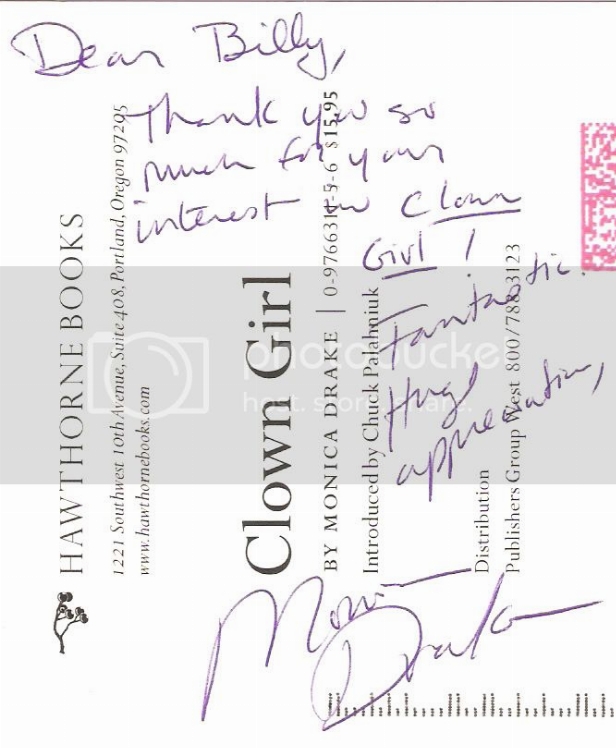 Dear Billy,
Thank you so
much for your
interest in Clown
Girl!
Fantastic.
Huge
appreciation,
Monica
Drake
HAWTHORNE BOOKS
1221 Southwest 10th Avenue, Suite 408, Portland, Oregon 97205
www.hawthornebooks.com
Clown Girl
BY MONICA DRAKE | 0-9766311-5-6 $15.95
Introduced by Chuck Palahniuk
Distribution
Publishers Group West 800/788 3123
photobucke
host. store. share.